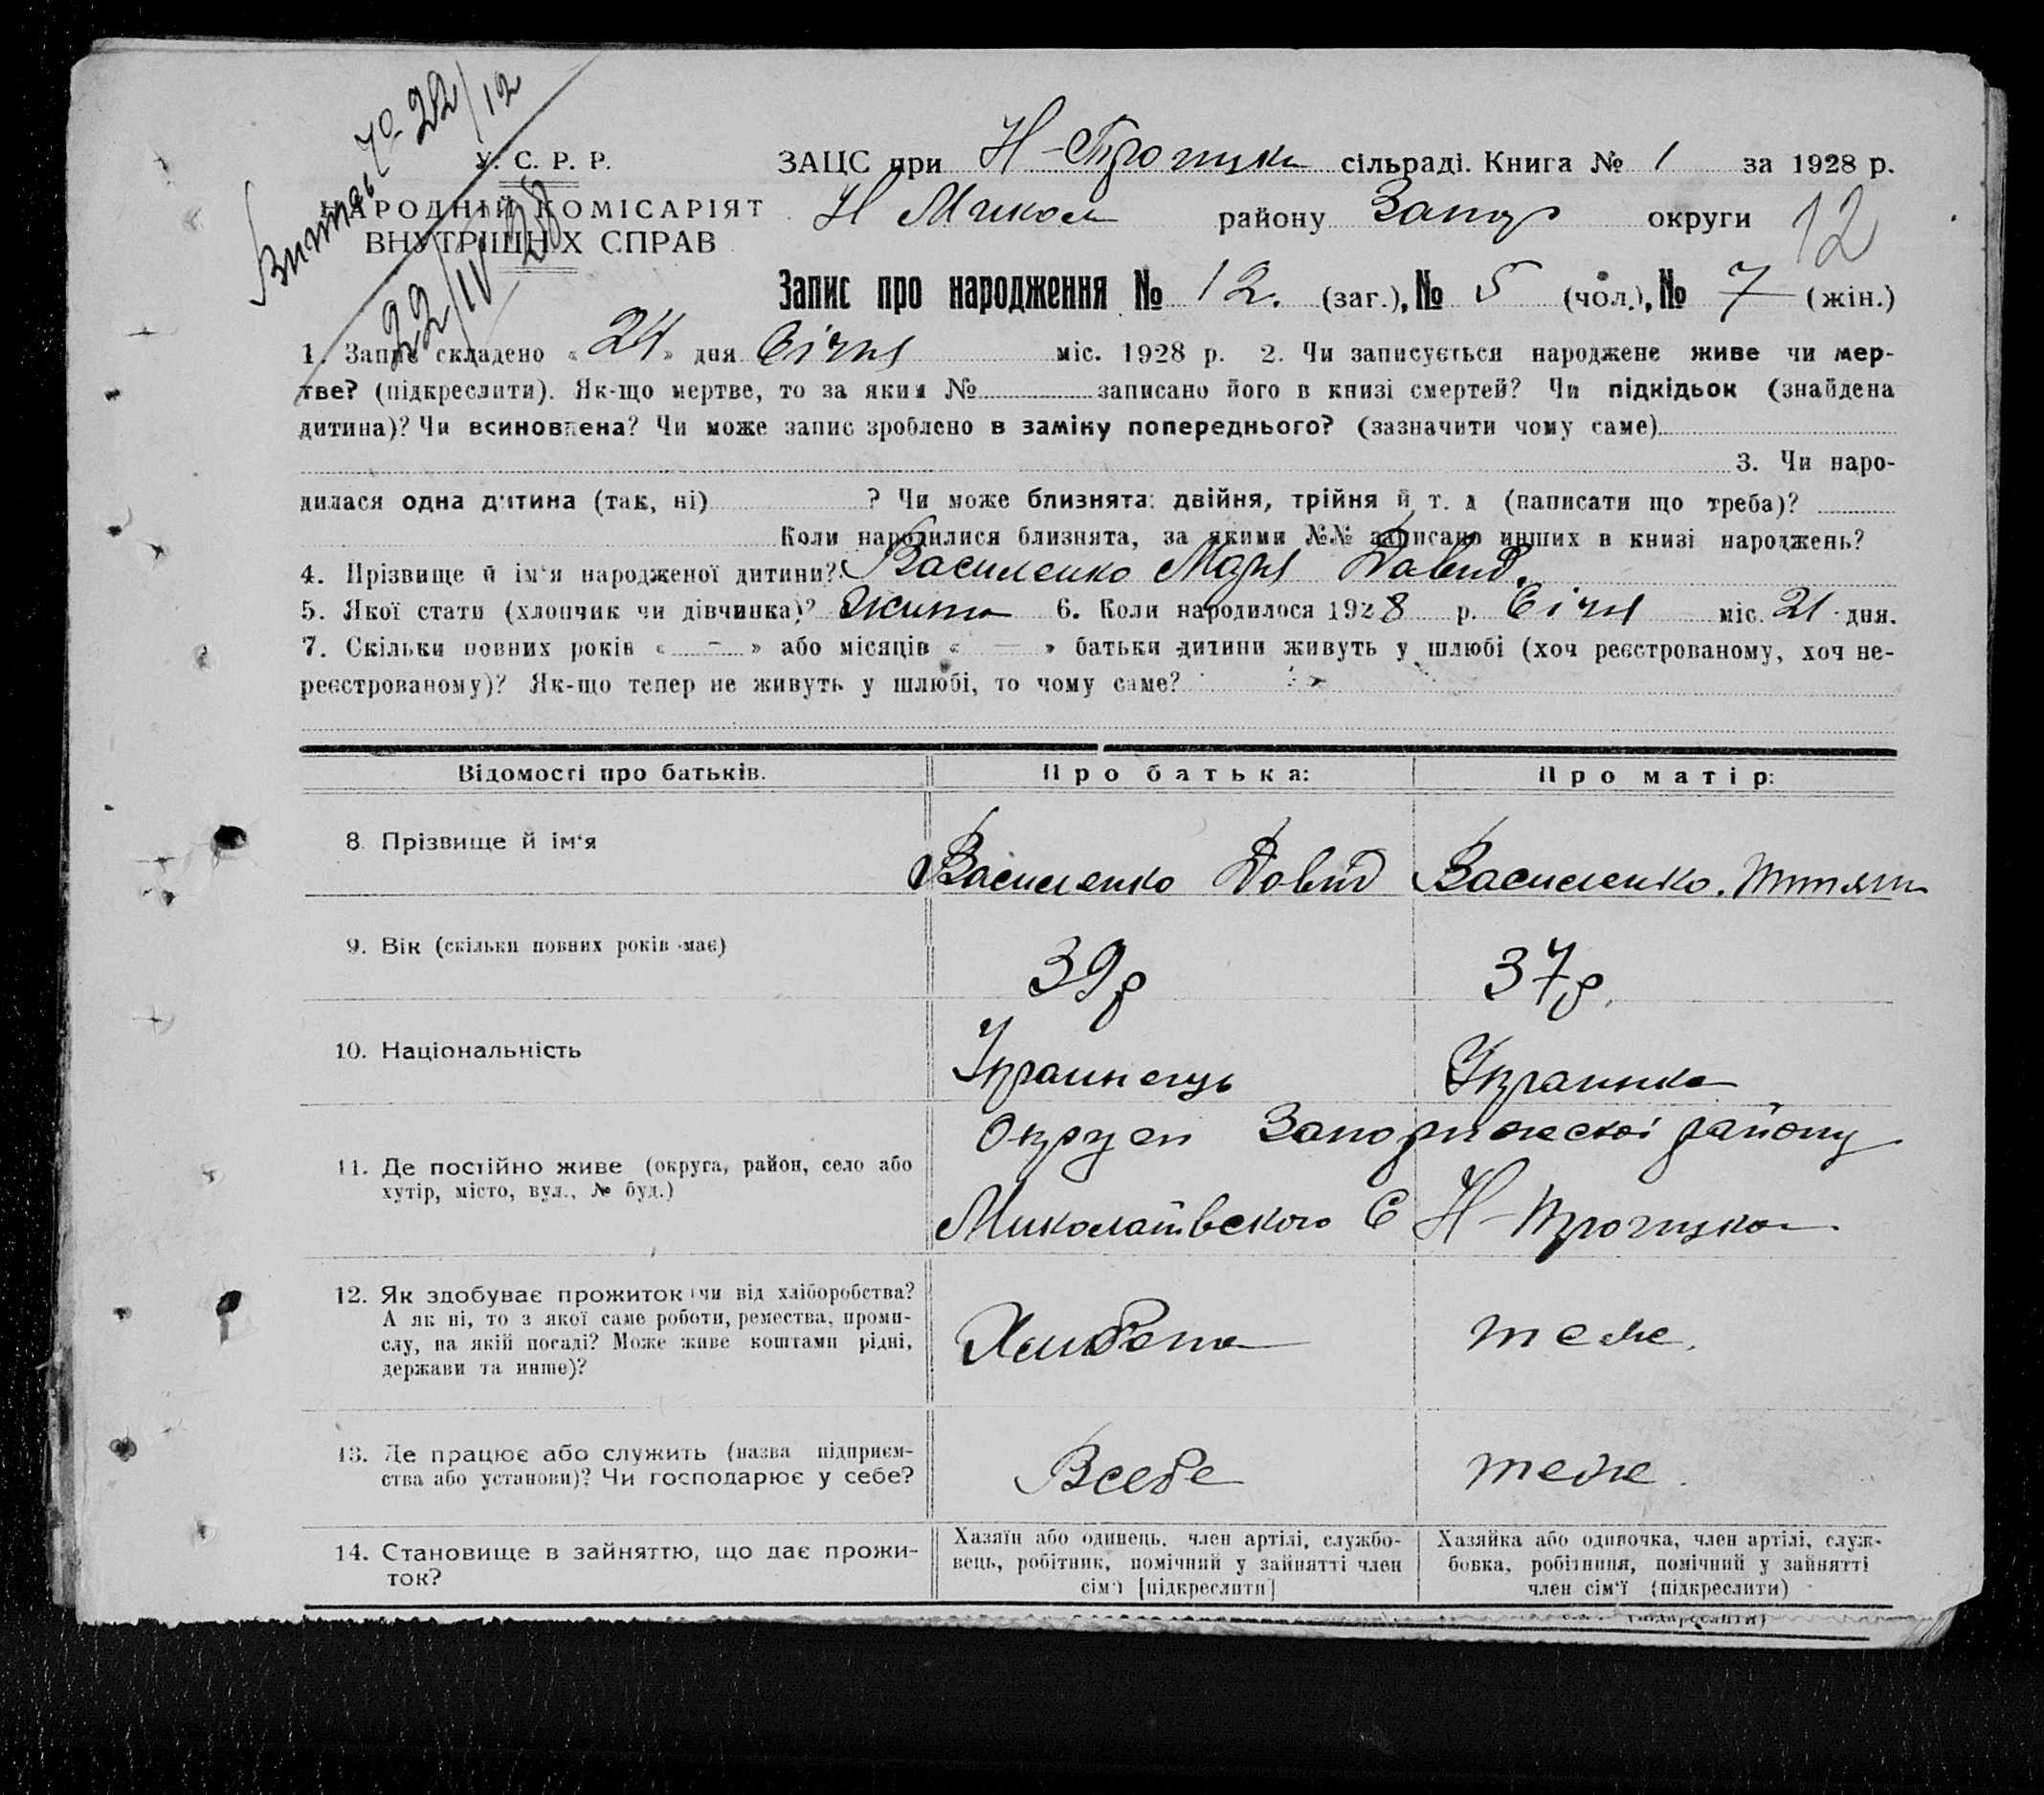 Витяг № 22/12
22/IV 28
У. С. Р. Р.
НАРОДНІЙ КОМІСАРІЯТ
ВНУТРІШНІХ СПРАВ
ЗАЦС при Н-Троицкій сільраді. Книга № 1 за 1928 р.
Н Микол району Запор округи 12
Запис про народження № 12. (заг.), № 5 (чол.), № 7 (жін.)
1. Запис складено « 24 » дня Січня міс. 1928 р. 2. Чи записується народжене живе чи мер-
тве? (підкреслити). Як-що мертве, то за яким № записано його в книзі смертей? Чи підкідьок (знайдена
дитина)? Чи всиновлена? Чи може запис зроблено в заміну попереднього? (зазначити чому саме)
3. Чи наро-
дилася одна дитина (так, ні) ? Чи може близнята: двійня, трійня й т. д (написати що треба)?
Коли народилися близнята, за якими №№ записано инших в книзі народжень?
4. Прізвище й ім'я народженої дитини? Василенко Марія Давид.
5. Якої стати (хлопчик чи дівчинка)? 6. Коли народилося 1928 р. Січня міс. 21 дня.
7. Скільки повних років « – » або місяців « — » батьки дитини живуть у шлюбі (хоч реєстрованому, хоч не-
реєстрованому)? Як-що тепер не живуть у шлюбі, то чому саме?
Відомості про батьків. Про батька: Про матір:
8. Прізвище й ім'я Василенко Давид Василенко
9. Вік (скільки повних років має) 39 р 37 р.
10. Національність Украинець Украинка
11. Де постійно живе (округа, район, село або
хутір, місто, вул., № буд.)
Округи Запорижескоі району
Миколаївского С Н-Троицкой
12. Як здобуває прожиток чи від хліборобства?
А як ні, то з якої саме роботи, ремества, проми-
слу, на якій посаді? Може живе коштами рідні,
держави та инше)?
теже.
13. Де працює або служить (назва підприєм-
ства або установи)? Чи господарює у себе?
Всебе теже.
14. Становище в зайняттю, що дає прожи-
ток?
Хазяїн або одинець, член артілі, службо-
вець, робітник, помічний у зайнятті член
сім'ї [підкреслити]
Хазяйка або одиночка, член артілі, служ-
бовка, робітниця, помічний у зайнятті
член сім'ї (підкреслити)
(підкреслити)